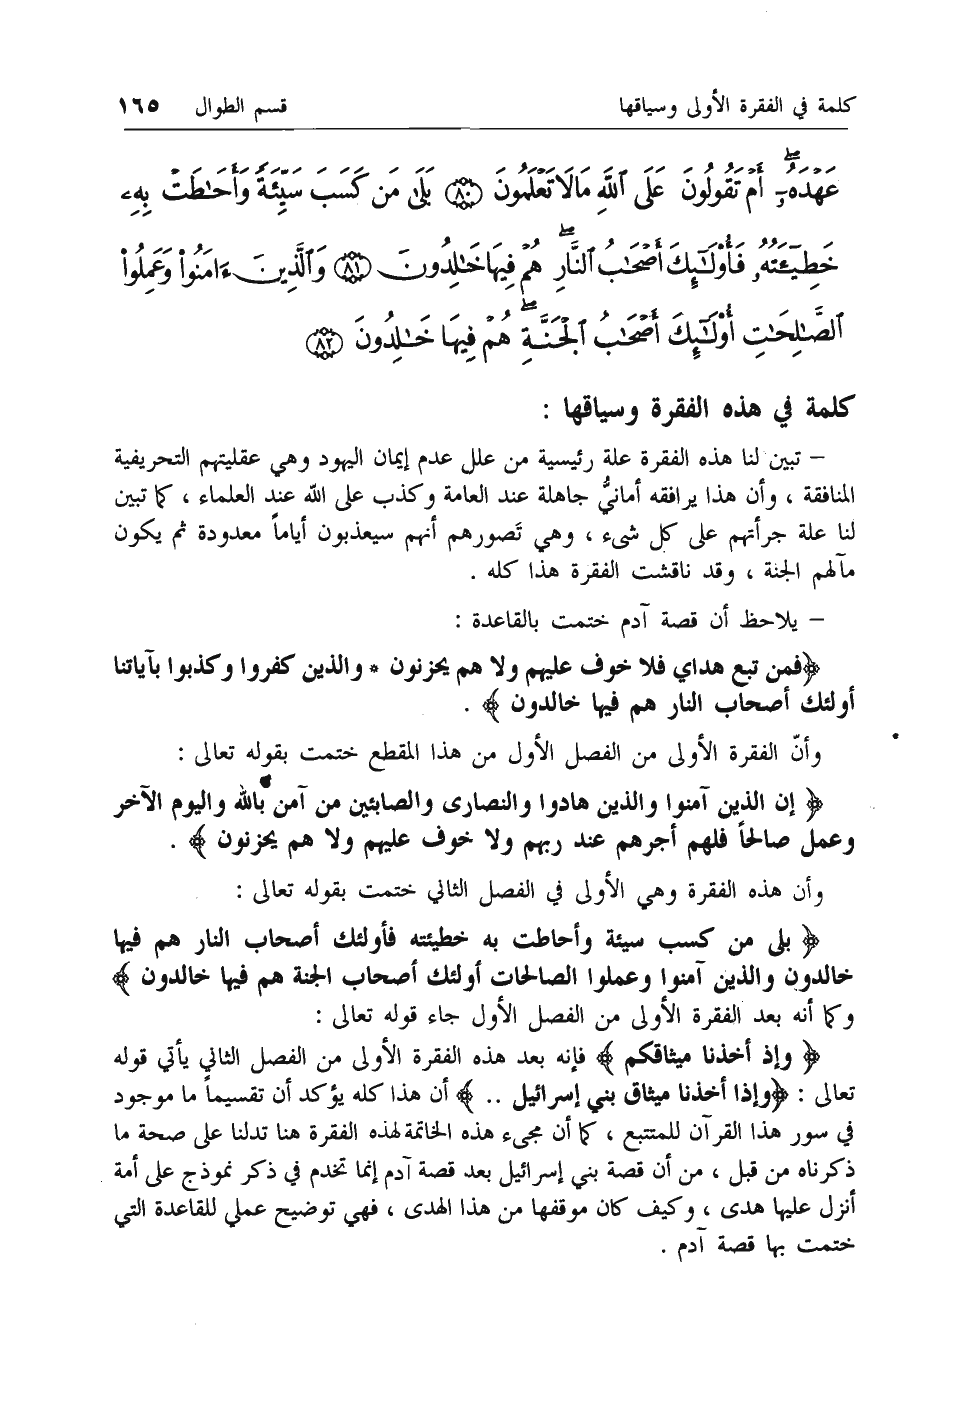 كلمة في الفقرة الأولى وسياقها قسم الطوال ١٦٥
عَهْدَهُۥٓ ۖ أَمْ تَقُولُونَ عَلَى ٱللَّهِ مَا لَا تَعْلَمُونَ ٨٠ بَلَىٰ مَن كَسَبَ سَيِّئَةً وَأَحَٰطَتْ بِهِۦ
خَطِيٓـَٔتُهُۥ فَأُو۟لَٰٓئِكَ أَصْحَٰبُ ٱلنَّارِ ۖ هُمْ فِيهَا خَٰلِدُونَ ٨١ وَٱلَّذِينَ ءَامَنُوا۟ وَعَمِلُوا۟
ٱلصَّٰلِحَٰتِ أُو۟لَٰٓئِكَ أَصْحَٰبُ ٱلْجَنَّةِ ۖ هُمْ فِيهَا خَٰلِدُونَ ٨٢
كلمة في هذه الفقرة وسياقها :
– تبين لنا هذه الفقرة علة رئيسية من علل عدم إيمان اليهود وهي عقليتهم التحريفية
المنافقة ، وأن هذا يرافقه أمانيُّ جاهلة عند العامة وكذب على الله عند العلماء ، كما تبين
لنا علة جرأتهم على كل شىء ، وهي تَصورهم أنهم سيعذبون أياماً معدودة ثم يكون
مآلهم الجنة ، وقد ناقشت الفقرة هذا كله .
– يلاحظ أن قصة آدم ختمت بالقاعدة :
﴿فمن تبع هداي فلا خوف عليهم ولا هم يحزنون * والذين كفروا وكذبوا بآياتنا
أولئك أصحاب النار هم فيها خالدون ﴾ .
وأنّ الفقرة الأولى من الفصل الأول من هذا المقطع ختمت بقوله تعالى :
﴿ إن الذين آمنوا والذين هادوا والنصارى والصابئين من آمن بالله واليوم الآخر
وعمل صالحاً فلهم أجرهم عند ربهم ولا خوف عليهم ولا هم يحزنون ﴾ .
وأن هذه الفقرة وهي الأولى في الفصل الثاني ختمت بقوله تعالى :
﴿ بلى من كسب سيئة وأحاطت به خطيئته فأولئك أصحاب النار هم فيها
خالدون والذين آمنوا وعملوا الصالحات أولئك أصحاب الجنة هم فيها خالدون ﴾
وكما أنه بعد الفقرة الأولى من الفصل الأول جاء قوله تعالى :
﴿ وإذ أخذنا ميثاقكم ﴾ فإنه بعد هذه الفقرة الأولى من الفصل الثاني يأتي قوله
تعالى : ﴿وإذا أخذنا ميثاق بني إسرائيل .. ﴾ أن هذا كله يؤكد أن تقسيماً ما موجود
في سور هذا القرآن للمتتبع ، كما أن مجىء هذه الخاتمة لهذه الفقرة هنا تدلنا على صحة ما
ذكرناه من قبل ، من أن قصة بني إسرائيل بعد قصة آدم إنما تخدم في ذكر نموذج على أمة
أنزل عليها هدى ، وكيف كان موقفها من هذا الهدى ، فهي توضيح عملي للقاعدة التي
ختمت بها قصة آدم .